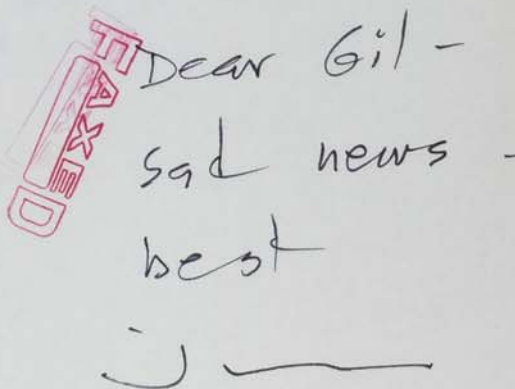 FAXED
Dear Gil -
sad news -
best